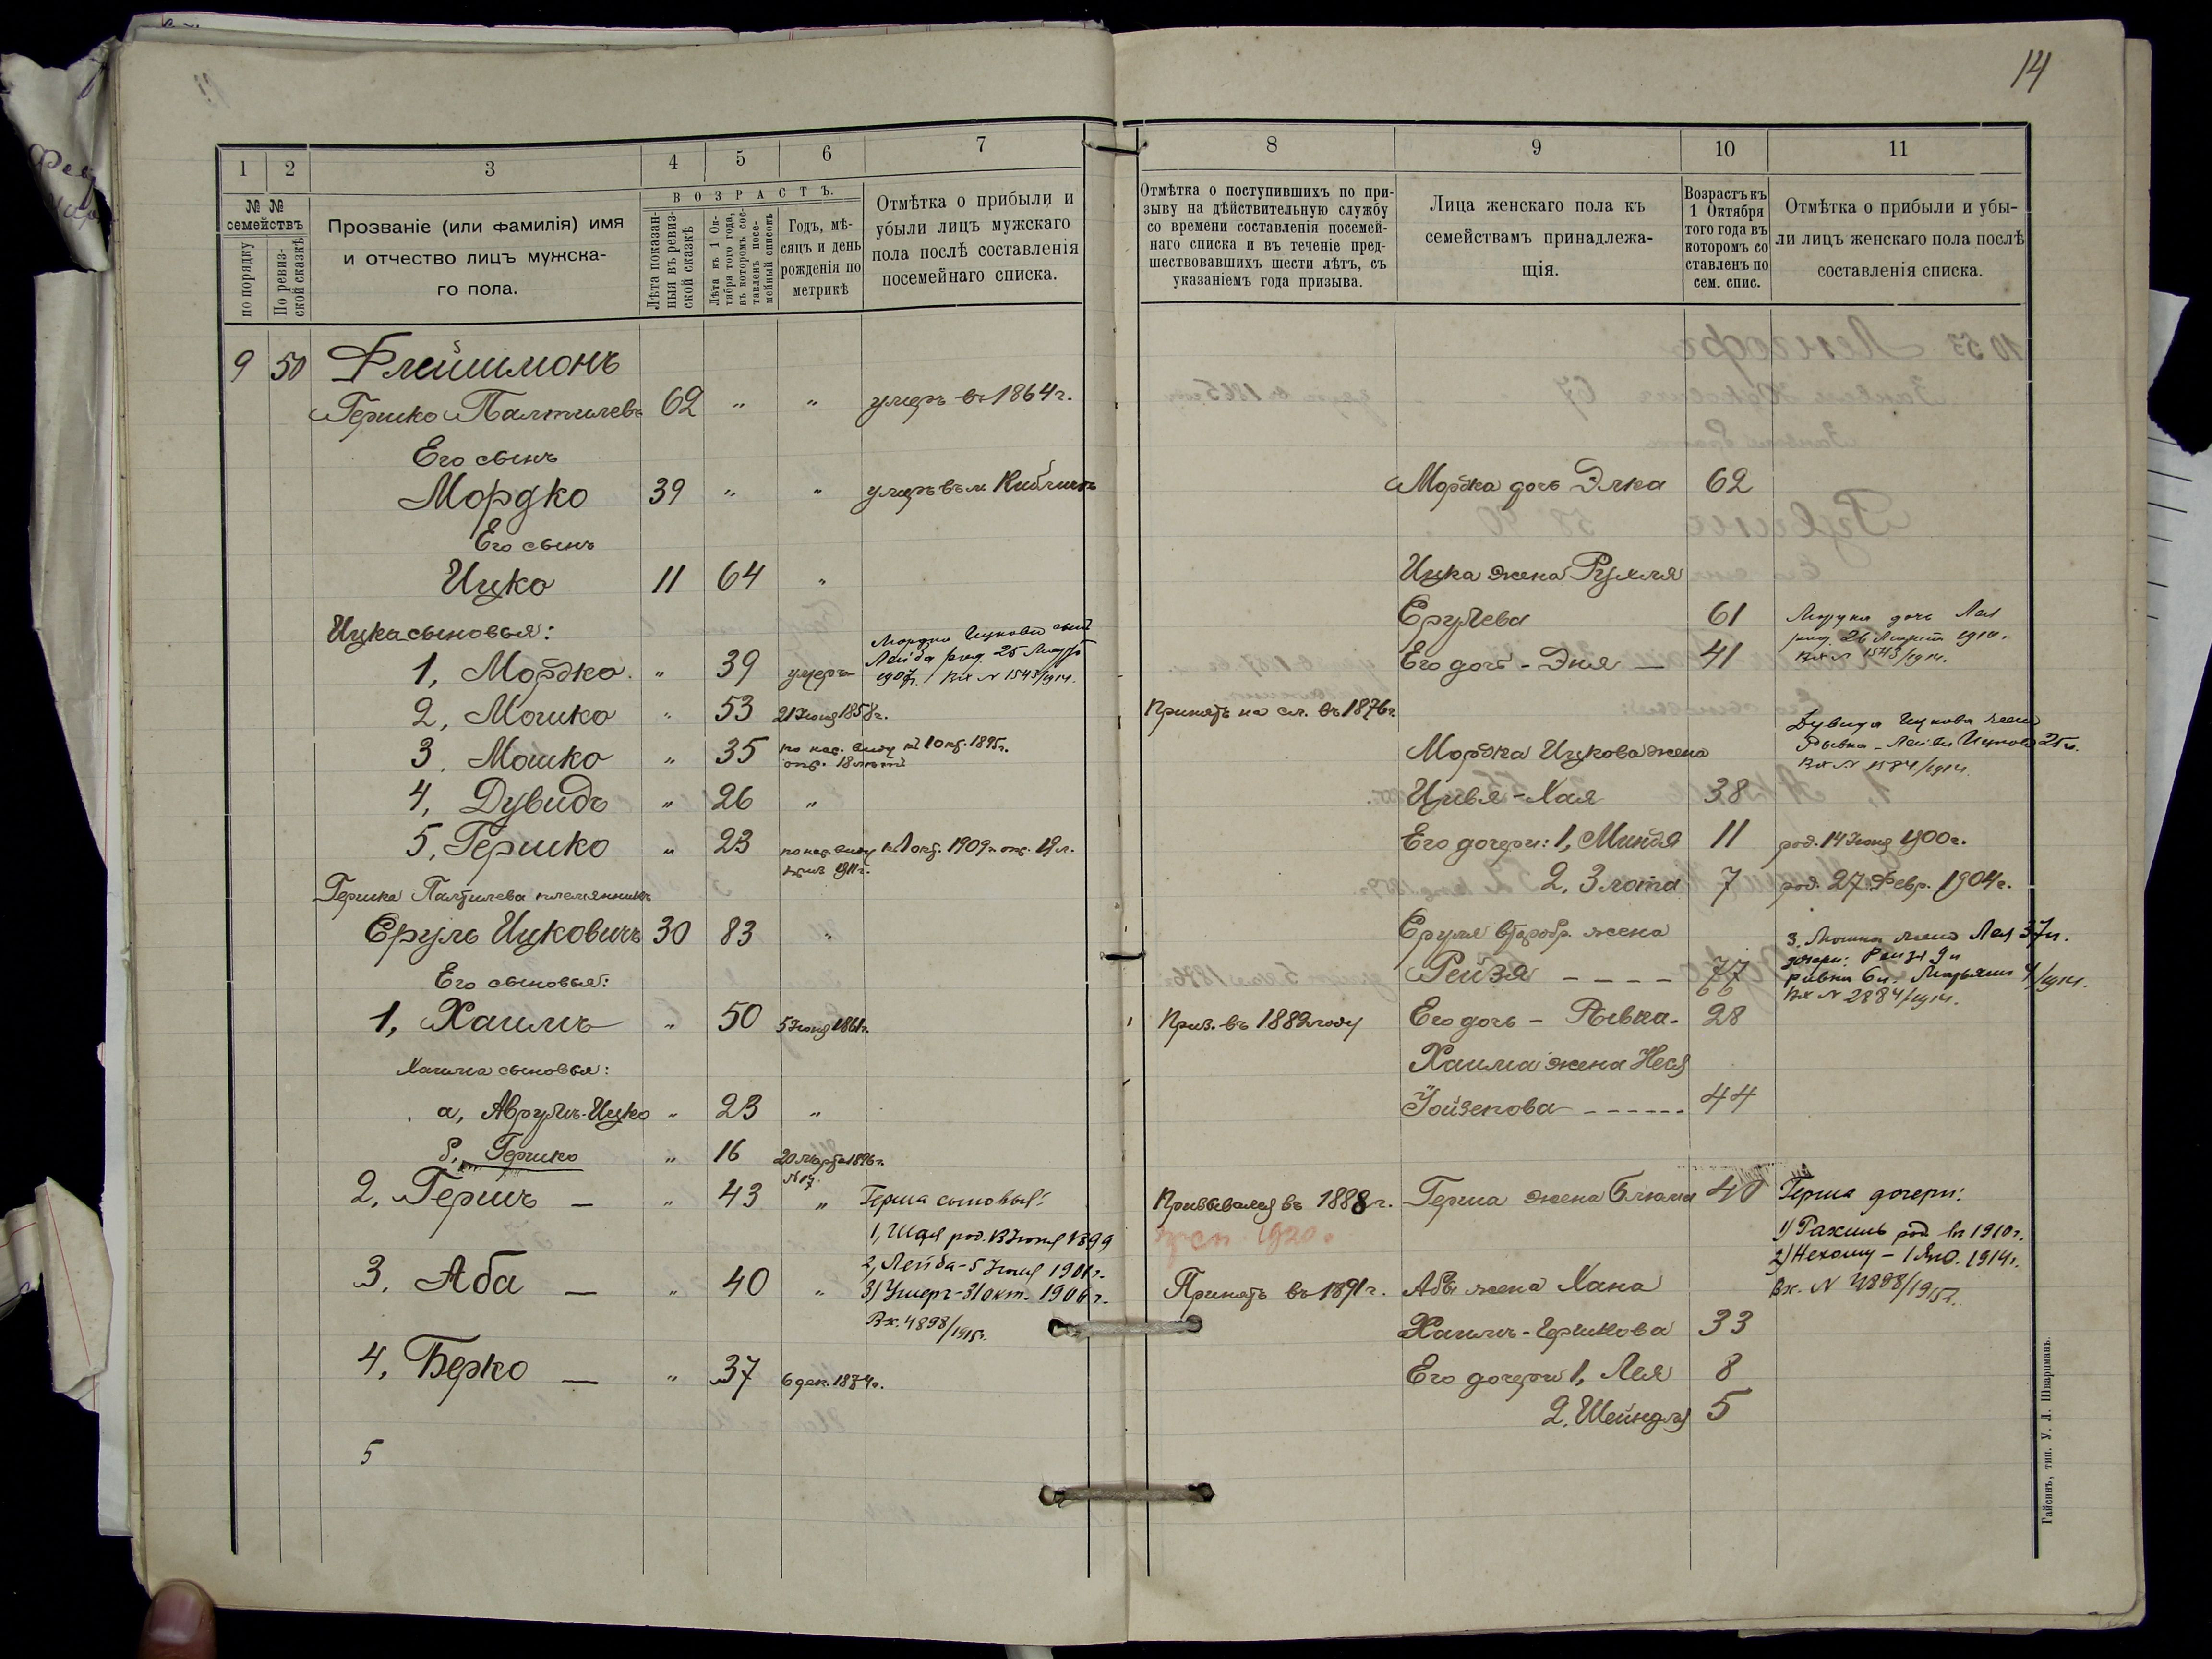 14
1
2
3
4
5
6
7
№ №
семействъ
по порядку
По ревиз-
ской сказкѣ
Прозваніе (или фамилія) имя
и отчество лицъ мужска-
го пола.
ВОЗРАСТЪ.
Лѣта показан-
ныя въ ревиз-
ской сказкѣ
Лѣта къ 1 Ок-
тября того года,
въ которомъ сос-
тавленъ посе-
мейный списокъ
Годъ, мѣ-
сяцъ и день
рожденія по
метрикѣ
Отмѣтка о прибыли и
убыли лицъ мужскаго
пола послѣ составленія
посемейнаго списка.
9 50 Флейшмонъ
Гершко Палтилевъ 62 " " умеръ въ 1864 г.
Его сынъ
Мордко 39 " " умеръ въ м. Кибличъ
Его сынъ
Ицко 11 64 "
Ицка сыновья:
Мордки Ицкова сынъ
1, Мордко " 39 умеръ Лейба род. 25
1907 г. Вх № 1543/1914.
2, Мошко " 53 21 Іюня 1858 г.
3, Мошко " 35 по нар. виду къ 1 окт. 1895 г.
опр. 18 лѣтъ
4, Дувидъ " 26 "
5, Гершко " 23 по нар. виду къ 1 окт. 1909 г. опр. 19 л.
1911 г.
Гершка Палтилева племянникъ
Еруль Ицковичъ 30 83 "
Его сыновья:
1, Хаимъ " 50 5 Іюня 1861 г.
Хаима сыновья:
а, Аврумъ-Ицко " 23 "
б, Гершко " 16 20 Марта 1896 г.
2, Гершъ — " 43 " Герша сыновья:
1, Шая род. 13 Іюня 1899
2, Лейба - 5 Іюня 1901 г.
3, Аба — " 40 " 3) Умеръ - 31 окт. 1906 г.
Вх. 4898/1915 г.
4, Берко — " 37 6 дек. 1874 г.
5
8
9
10
11
Отмѣтка о поступившихъ по при-
зыву на дѣйствительную службу
со времени составленія посемей-
наго списка и въ теченіе пред-
шествовавшихъ шести лѣтъ, съ
указаніемъ года призыва.
Лица женскаго пола къ
семействамъ принадлежа-
щія.
Возрастъ къ
1 Октября
того года въ
которомъ со
ставленъ по
сем. спис.
Отмѣтка о прибыли и убы-
ли лицъ женскаго пола послѣ
составленія списка.
Мордка дочь Элка 62
Ицка жена Рухля
Ерулева 61 дочь Лея
род. 26 1910.
Его дочь - Эня — 41 Вх № 1543/1914.
Принятъ на сл. въ 1876 г.
Дувида Ицкова жена
Мордка Ицкова жена Рывка - 25 л.
Вх № 1584/1914.
Цивля - Хая 38
Его дочери: 1, Минця 11 род. 14 Іюня 1900 г.
2, Злота 7 род. 27 Февр. 1904 г.
Еруля второбр. жена 3. Мошка жена Лея 37 л.
Рейзя - - - - 77 дочери: Рейзя 9 л
66 ривка 6 л. Марьямъ 4/1914.
Вх № 2884/1914.
Приз. въ 1882 году Его дочь - Рывка - 28
Хаима жена Неся
Іойзепова - - - - - - 44
Призывался въ 1888 г. Герша жена Блюма 40 Герша дочери:
1920
1) Рахиль род. въ 1910 г.
2) Нехому - 1 Янв. 1914 г.
Принятъ въ 1891 г. Абы жена Хана Вх. № 4898/1915 г.
Хаимъ-Гершкова 33
Его дочери 1, Лея 8
2, Шейндля 5
Гайсинъ, тип. У. Л. Шварцманъ.